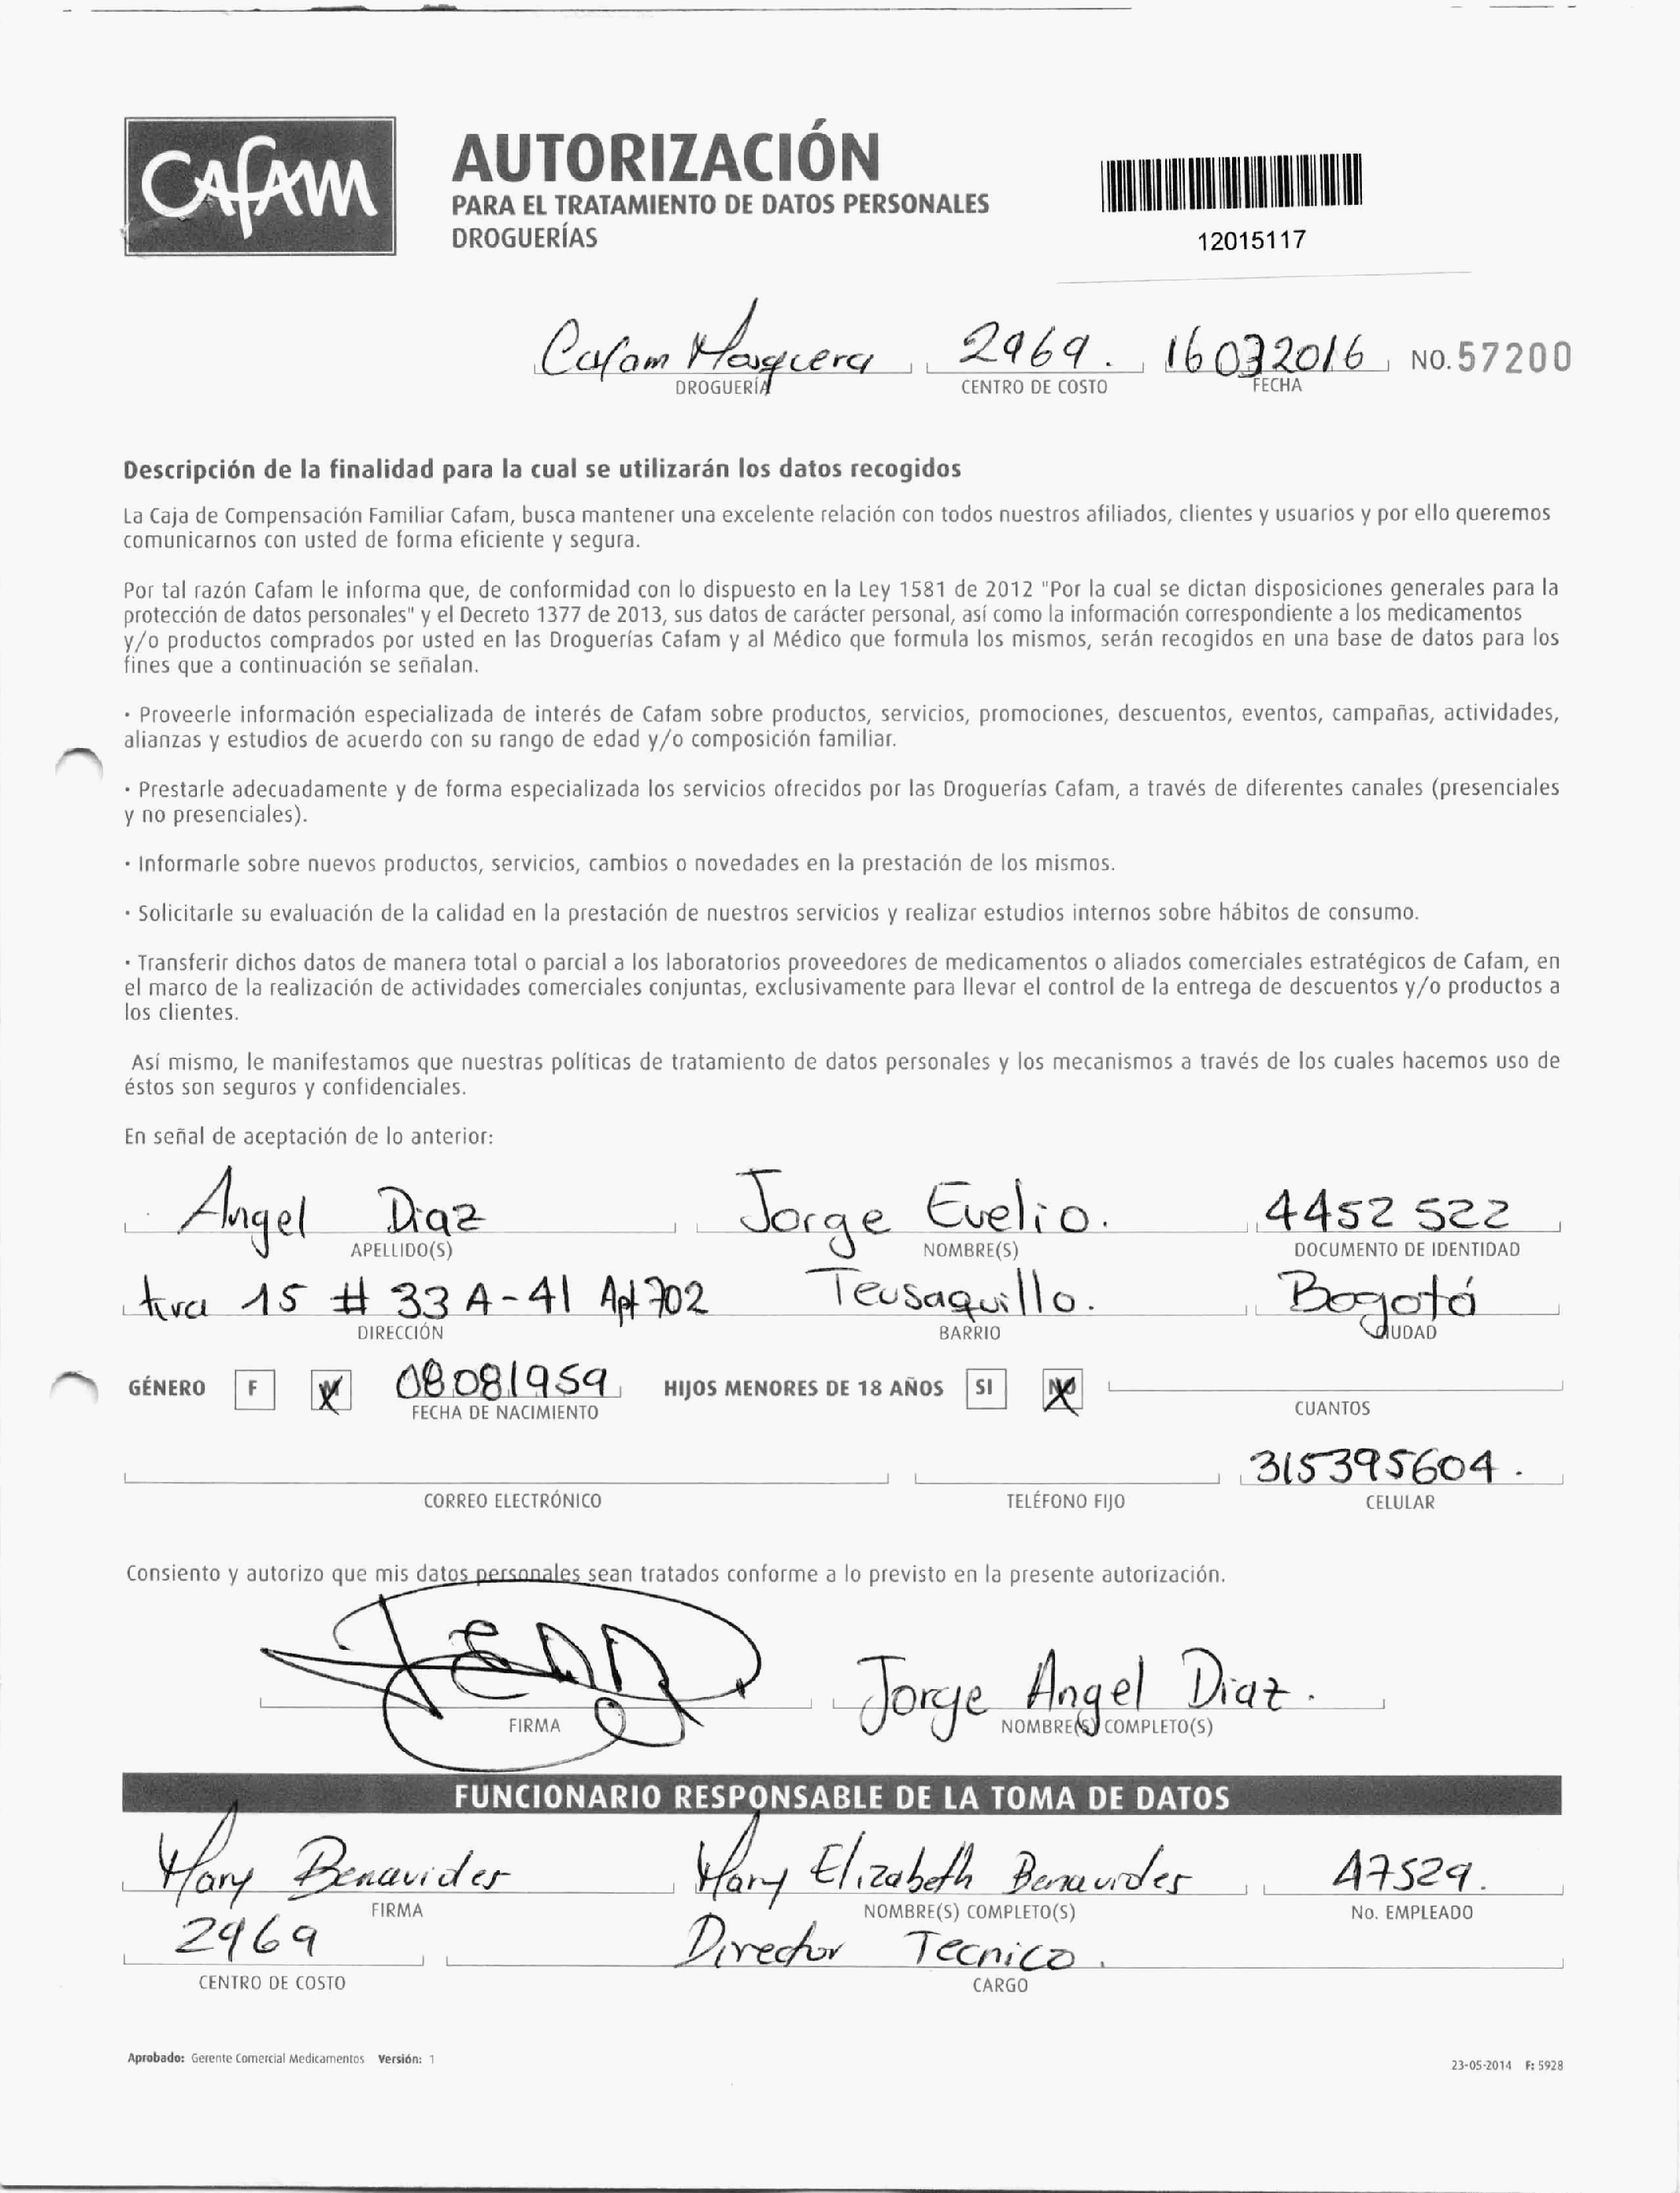 CAFAM
AUTORIZACIÓN
PARA EL TRATAMIENTO DE DATOS PERSONALES
DROGUERÍAS
12015117
Cafam Mosquera 2969. 16032016 NO. 57200
DROGUERÍA CENTRO DE COSTO FECHA
Descripción de la finalidad para la cual se utilizarán los datos recogidos
La Caja de Compensación Familiar Cafam, busca mantener una excelente relación con todos nuestros afiliados, clientes y usuarios y por ello queremos
comunicarnos con usted de forma eficiente y segura.
Por tal razón Cafam le informa que, de conformidad con lo dispuesto en la Ley 1581 de 2012 "Por la cual se dictan disposiciones generales para la
protección de datos personales" y el Decreto 1377 de 2013, sus datos de carácter personal, así como la información correspondiente a los medicamentos
y/o productos comprados por usted en las Droguerías Cafam y al Médico que formula los mismos, serán recogidos en una base de datos para los
fines que a continuación se señalan.
· Proveerle información especializada de interés de Cafam sobre productos, servicios, promociones, descuentos, eventos, campañas, actividades,
alianzas y estudios de acuerdo con su rango de edad y/o composición familiar.
· Prestarle adecuadamente y de forma especializada los servicios ofrecidos por las Droguerías Cafam, a través de diferentes canales (presenciales
y no presenciales).
· Informarle sobre nuevos productos, servicios, cambios o novedades en la prestación de los mismos.
· Solicitarle su evaluación de la calidad en la prestación de nuestros servicios y realizar estudios internos sobre hábitos de consumo.
· Transferir dichos datos de manera total o parcial a los laboratorios proveedores de medicamentos o aliados comerciales estratégicos de Cafam, en
el marco de la realización de actividades comerciales conjuntas, exclusivamente para llevar el control de la entrega de descuentos y/o productos a
los clientes.
Así mismo, le manifestamos que nuestras políticas de tratamiento de datos personales y los mecanismos a través de los cuales hacemos uso de
éstos son seguros y confidenciales.
En señal de aceptación de lo anterior:
Angel Diaz Jorge Evelio. 4452 522
APELLIDO(S) NOMBRE(S) DOCUMENTO DE IDENTIDAD
trva 15 # 33 A-41 Apt 702 Teusaquillo. Bogotá
DIRECCIÓN BARRIO CIUDAD
GÉNERO F M 08081959 HIJOS MENORES DE 18 AÑOS SI NO
FECHA DE NACIMIENTO CUANTOS
315395604.
CORREO ELECTRÓNICO TELÉFONO FIJO CELULAR
Consiento y autorizo que mis datos personales sean tratados conforme a lo previsto en la presente autorización.
Jorge Angel Diaz.
FIRMA NOMBRE(S) COMPLETO(S)
FUNCIONARIO RESPONSABLE DE LA TOMA DE DATOS
Mary Benavides Mary Elizabeth Benavides 47529.
FIRMA NOMBRE(S) COMPLETO(S) No. EMPLEADO
2969 Director Tecnico.
CENTRO DE COSTO CARGO
Aprobado: Gerente Comercial Medicamentos Versión: 1 23-05-2014 F: 5928